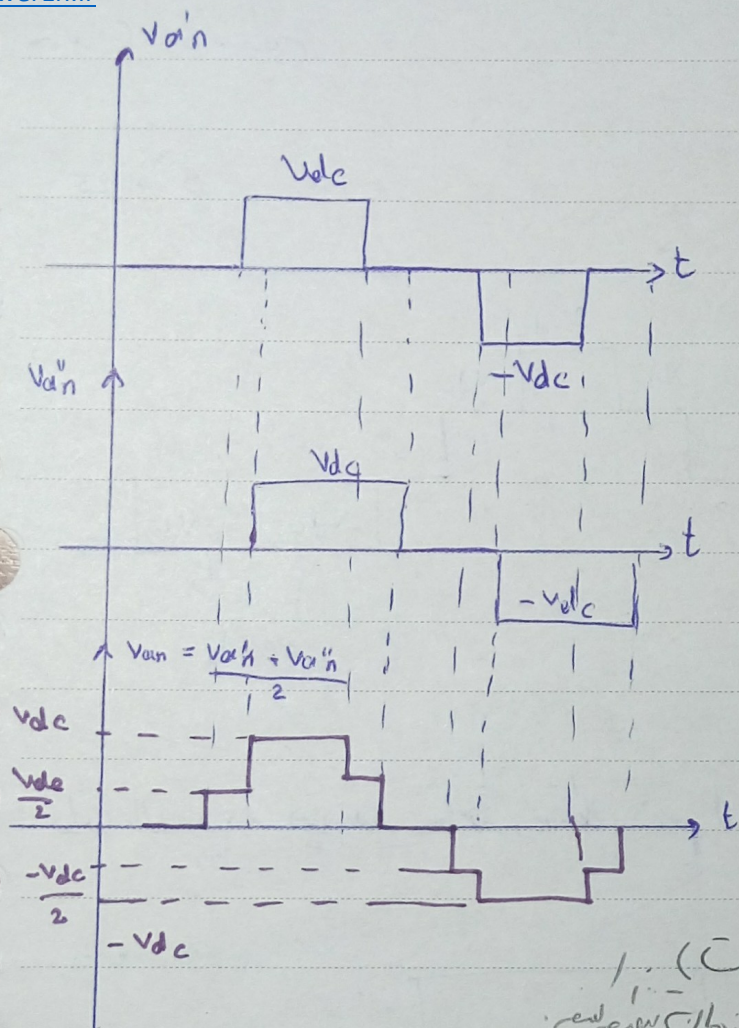 Va'n
Vdc
t
-Vdc
Va"n
Vdc
t
-Vdc
Van = Va'n + Va"n
2
Vdc
Vdc
2
t
-Vdc
2
-Vdc